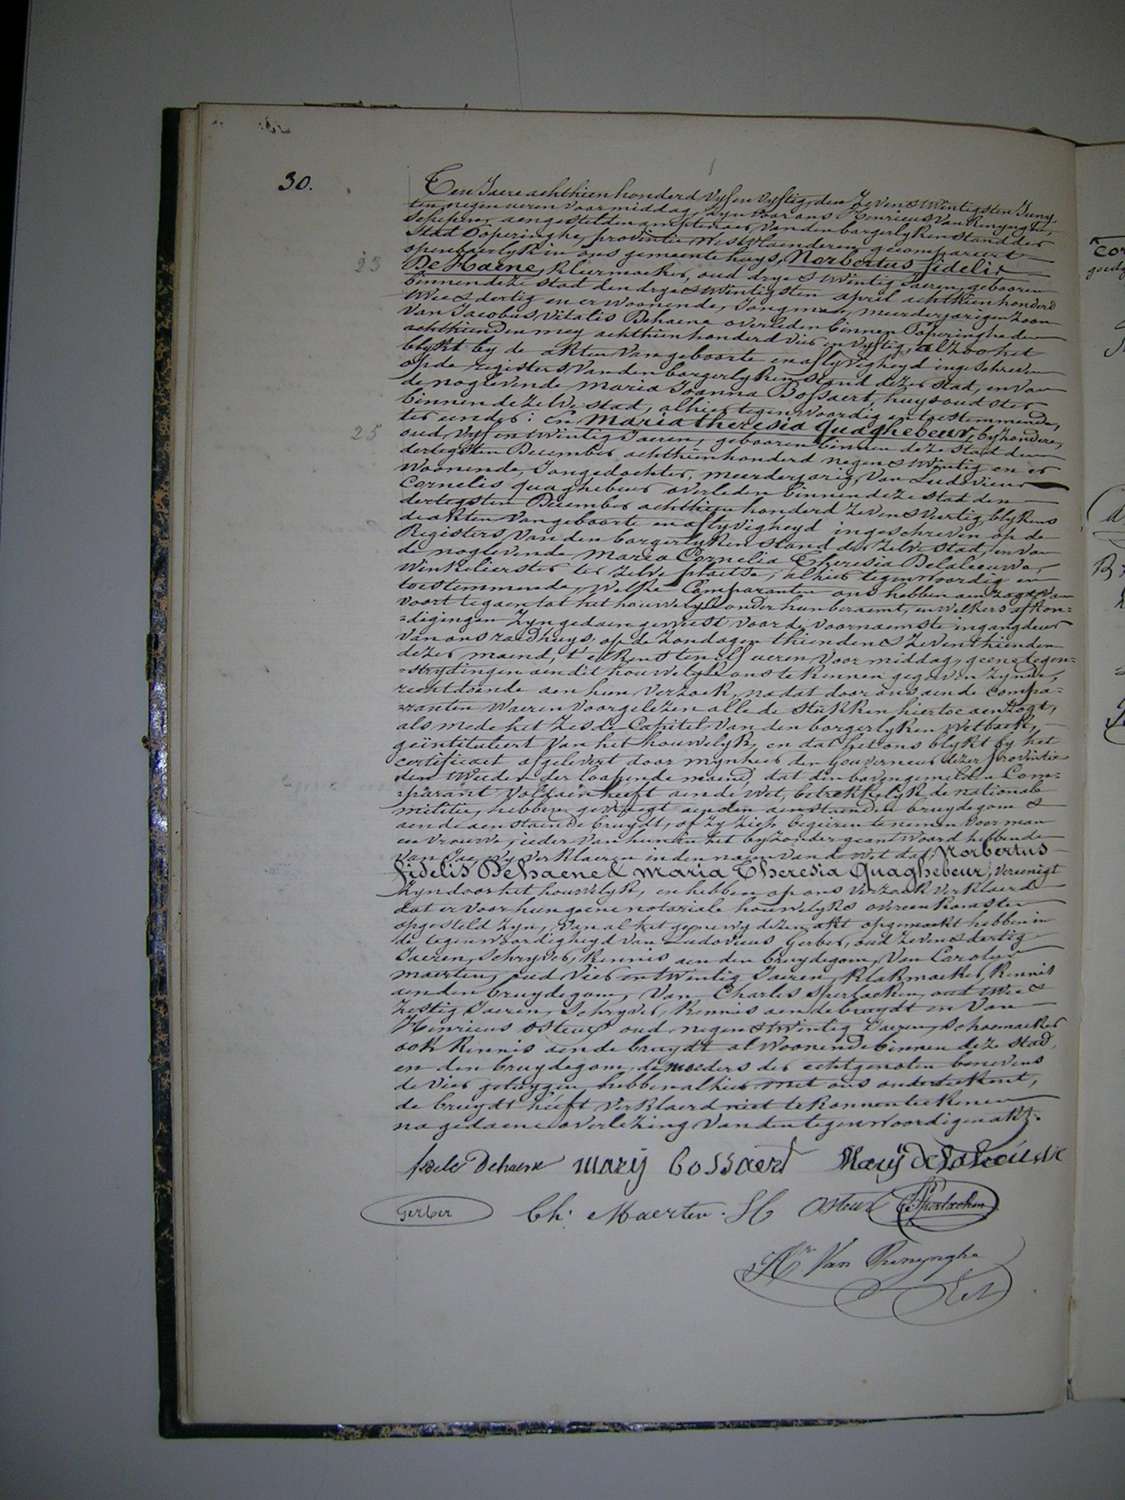 30.
Ten Jaere achthien honderd vyf en vyftig, den zeven & twintigsten Juny,
ten negen ueren voormiddag, zyn voor ons Henricus Van Renynghe,
Schepene, aengestelden amptenaer van den borgerlyken stand der
Stad Poperinghe, provintie Westvlaenderen, gecompareert
openbaerlyk in ons gemeente huys, Norbertus fidelis
23
DeHaene, kleermaeker, oud drye & twintig Jaeren, gebooren
binnen deze stad den drye & twintigsten april achthien honderd
twee & dertig en er woonende, Jongman, meerderjarigen zoon
van Jacobus Vitalis Dehaene overleden binnen Poperinghe den
achthienden mey achthien honderd vier en vyftig, alzoo het
blykt by de akten van geboorte en aflyvigheyd ingeschreven
op de registers van den borgerlyken stand dezer stad, en van
de noglevende Maria Joanna Bossaert, huyshoudster
binnen deze stad, alhier tegenwoordig en toestemmende,
ter eender: En Maria theresia Quaghebeur, byzondere,
25
oud vyf en twintig Jaeren, gebooren binnen deze stad den
dertigsten December achthien honderd negen & twintig en er
woonende, Jongedochter, meerderjarig, van Ludovicus
Cornelis Quaghebeur overleden binnen deze stad den
dertigsten December achthien honderd zeven & veertig, blykens
de akten van geboorte en aflyvigheyd ingeschreven op de
Registers van den borgerlyken stand der zelve stad, en van
de noglevende Maria Cornelia Theresia Delaleeuwe,
Winkelierster ter zelve plaetse, alhier tegenwoordig en
toestemmende, welke Comparanten ons hebben aenzogt van
voort te gaen tot het houwelyk onder hun beraemt, en welkers afkon-
=digingen zyn gedaen geweest voor de voornaemste ingangdeur
van ons raedhuys, op de zondagen thienden & zeventhienden
dezer maend, t'elkent ten elf ueren voor middag, geene tegen-
=strydingen aen dit houwelyk ons te kennen gegeven zynde,
rechtdoende aen hun verzoek, na dat door ons aen de Compa-
=ranten waeren voorgelezen alle de stukken hiertoe aenzogt,
als mede het zesde Capitel van den borgerlyken Wetboek,
geintituleert Van het houwelyk, en dat het ons blykt by het
certificaet afgelevert door mynheer den Gouverneur dezer provintie
den tweeden der loopende maend, dat den bovengemelden Com-
=parant voldaen heeft aen de Wet, betrekkelyk de nationale
militie, hebben gevraegt aen den aenstaenden bruydegom &
aen de aenstaende bruydt, of zy zich begeeren te nemen voor man
en vrouwe, ieder van hun in het byzonder geantwoord hebbende
van Jae, wy verklaeren in den naem van de Wet dat Norbertus
fidelis Dehaene & Maria Theresia Quaghebeur, vereenigt
zyn door het houwelyk, en hebben op ons verzoek verklaerd
dat er voor hun geene notariale houwelyks overeenkomsten
opgesteld zyn, Van al het gene wy dezen akt opgemaekt hebben in
de tegenwoordigheyd van Ludovicus Gerber, oud zeven & dertig
Jaeren, Schryver, kennis aen den bruydegom, Van Carolus
maerten, oud vier en twintig Jaeren, klakmaeker, kennis
aen den bruydegom, van Charles Sperlaeken, oud twee &
zestig Jaeren, Schryver, kennis aen de bruydt en van
Henricus Osteux oud negen & twintig Jaeren, Schoenmaeker
ook kennis aen de bruydt al woonende binnen deze stad,
en den bruydegom, de moeders der echtgenoten benevens
de vier getuygen, hebben alhier met ons onderteekent,
de bruydt heeft verklaerd niet te konnen teekenen
na gedaene overlezing van den tegenwoordigen akt.
fidelis Dehaene Marij Bossaert Marij De
Gerber Ch: Maerten. H Osteux
Hri Van Renynghe